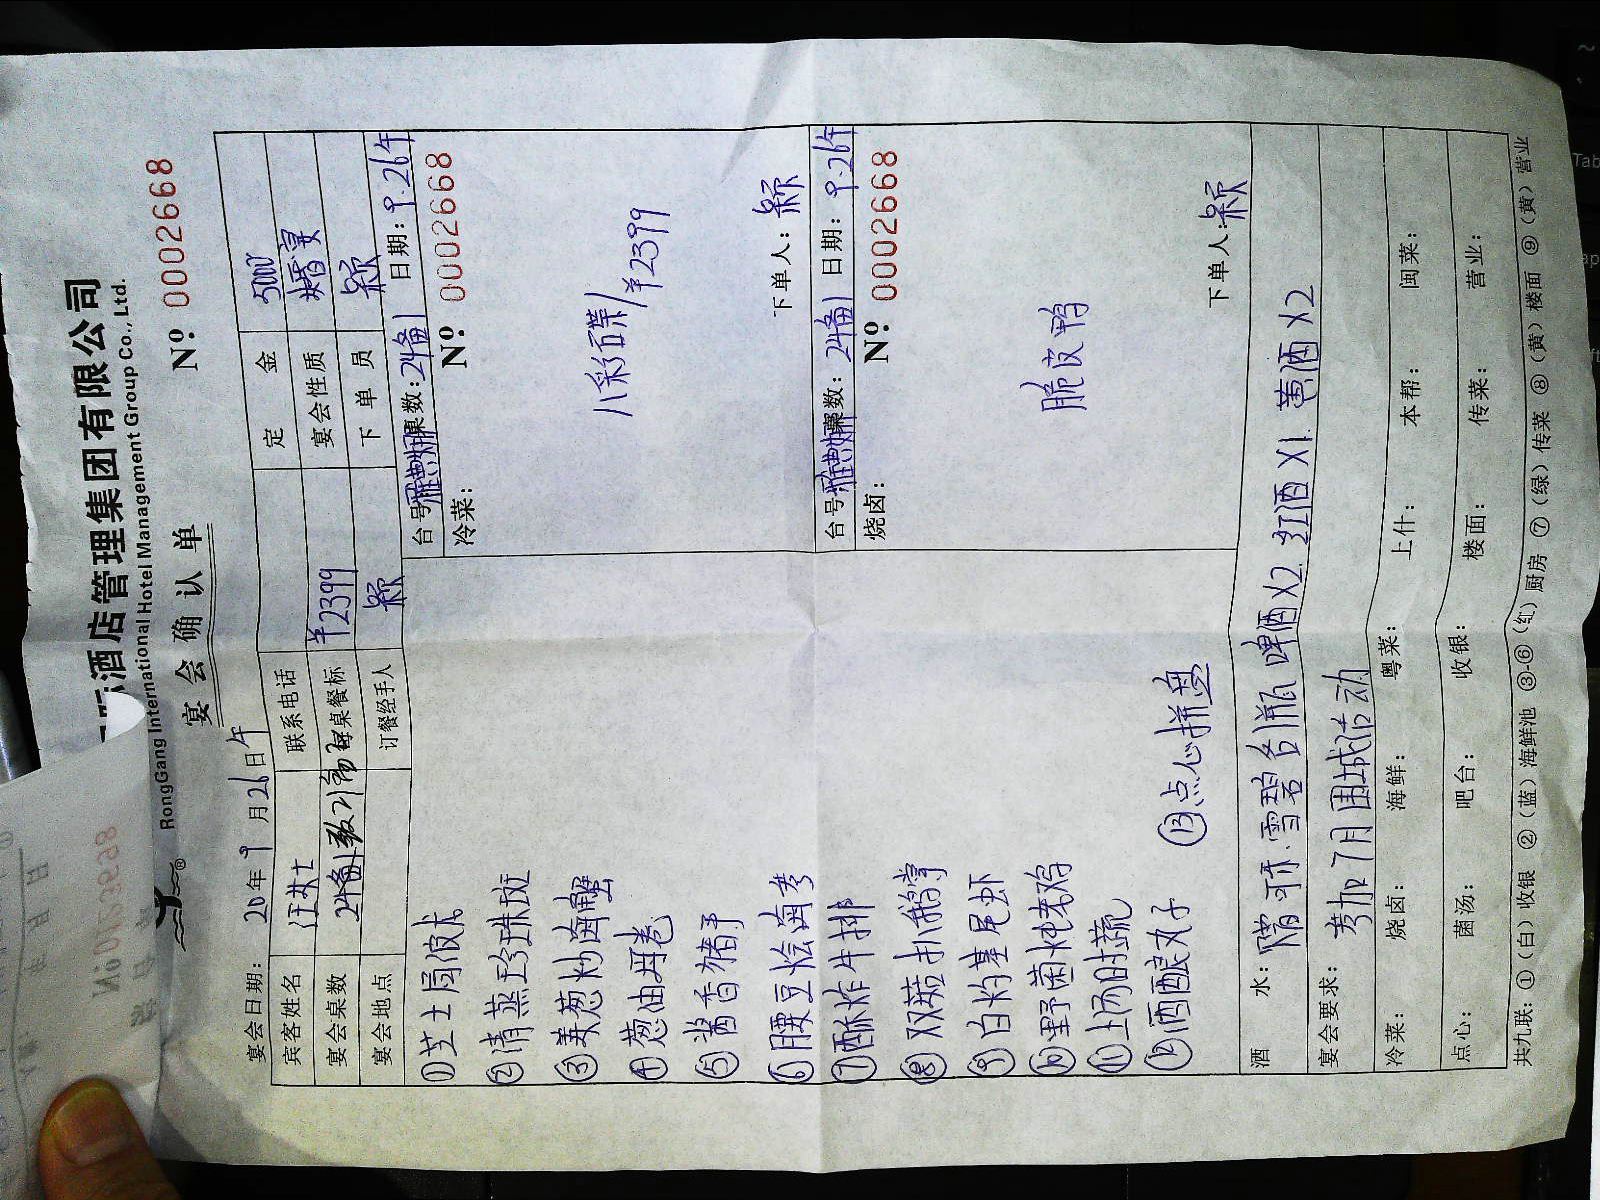 际酒店管理集团有限公司
RongGang International Hotel Management Group Co., Ltd.
®
宴会确认单
Nº 0002668
宴会日期: 20 年 9 月 26 日 午
宾客姓名 汪女士 联系电话 定金 5000
宴会桌数 24备1 每桌餐标 ¥2399 宴会性质 婚宴
宴会地点 订餐经手人 颖 下单员 颖
台号: 雅典娜 桌数: 24备1 日期: 9.26午
冷菜: Nº 0002668
八彩碟 / ¥2399
下单人: 颖
台号: 雅典娜 桌数: 24备1 日期: 9.26午
烧卤: Nº 0002668
脆皮鸭
下单人: 颖
①芝士焗
②清蒸珍珠斑
③姜葱炒海蟹
④葱油
⑤酱香猪手
⑥腰豆烩海参
⑦酥炸牛排
⑧双菇扒鹅掌
⑨白灼基尾虾
⑩野菌炖老鸡
⑪上汤时蔬
⑫酒酿丸子
⑬点心拼盘
酒水: 赠 可乐.雪碧各1瓶 啤酒X2 红酒X1. 黄酒X2
宴会要求: 参加7月围城活动
冷菜: 烧卤: 海鲜: 粤菜: 上什: 本帮: 闽菜:
点心: 菌汤: 吧台: 收银: 楼面: 传菜: 营业:
共九联: ①(白)收银 ②(蓝)海鲜池 ③-⑥(红)厨房 ⑦(绿)传菜 ⑧(黄)楼面 ⑨(黄)营业